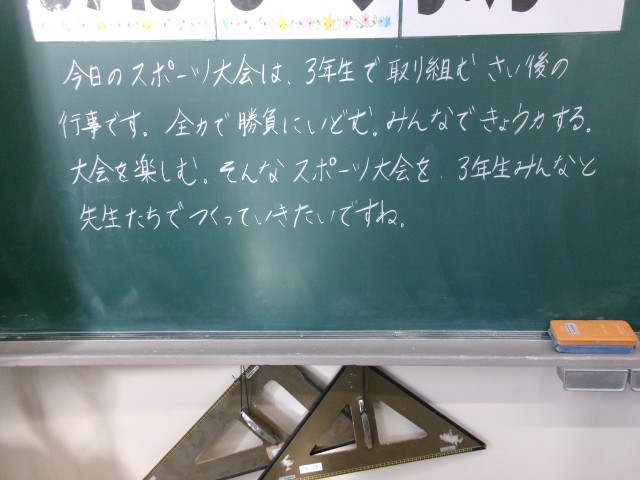 今日のスポーツ大会は、3年生で取り組む さい後の
行事です。全力で勝負にいどむ。みんなできょう力する。
大会を楽しむ。そんなスポーツ大会を、3年生みんなと
先生たちでつくっていきたいですね。